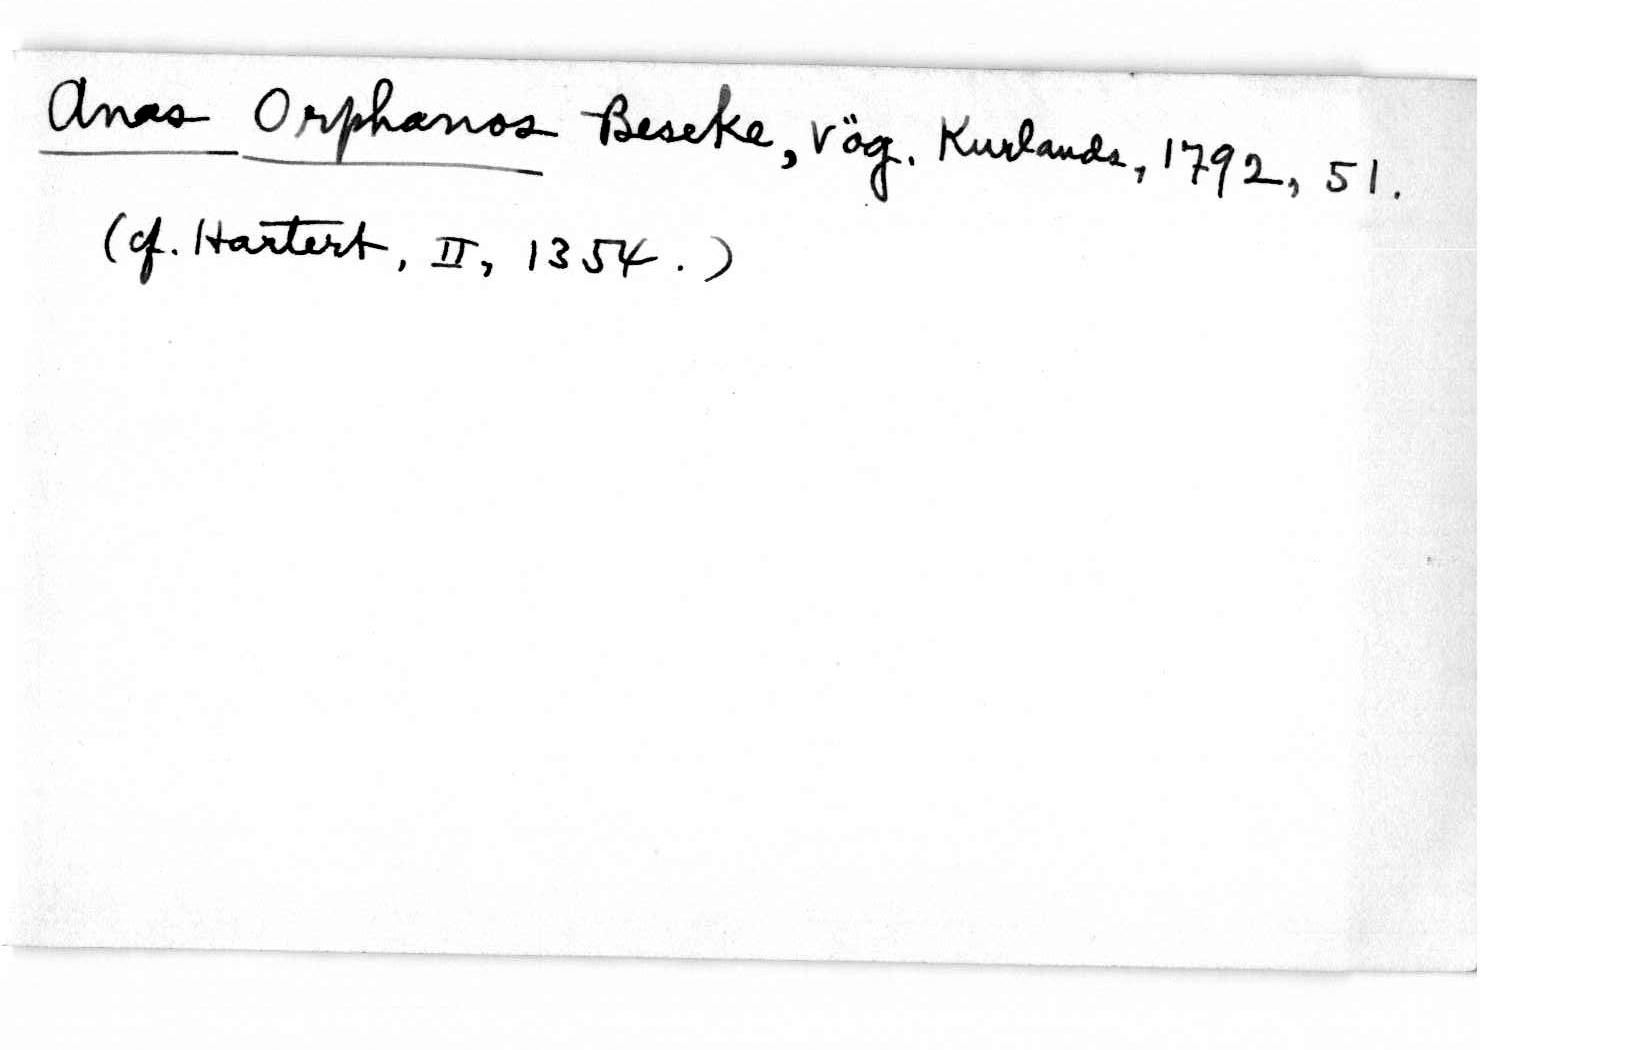 Anas Orphanos Beseke, Vög. Kurlands, 1792, 51.
(cf. Hartert, II, 1354.)